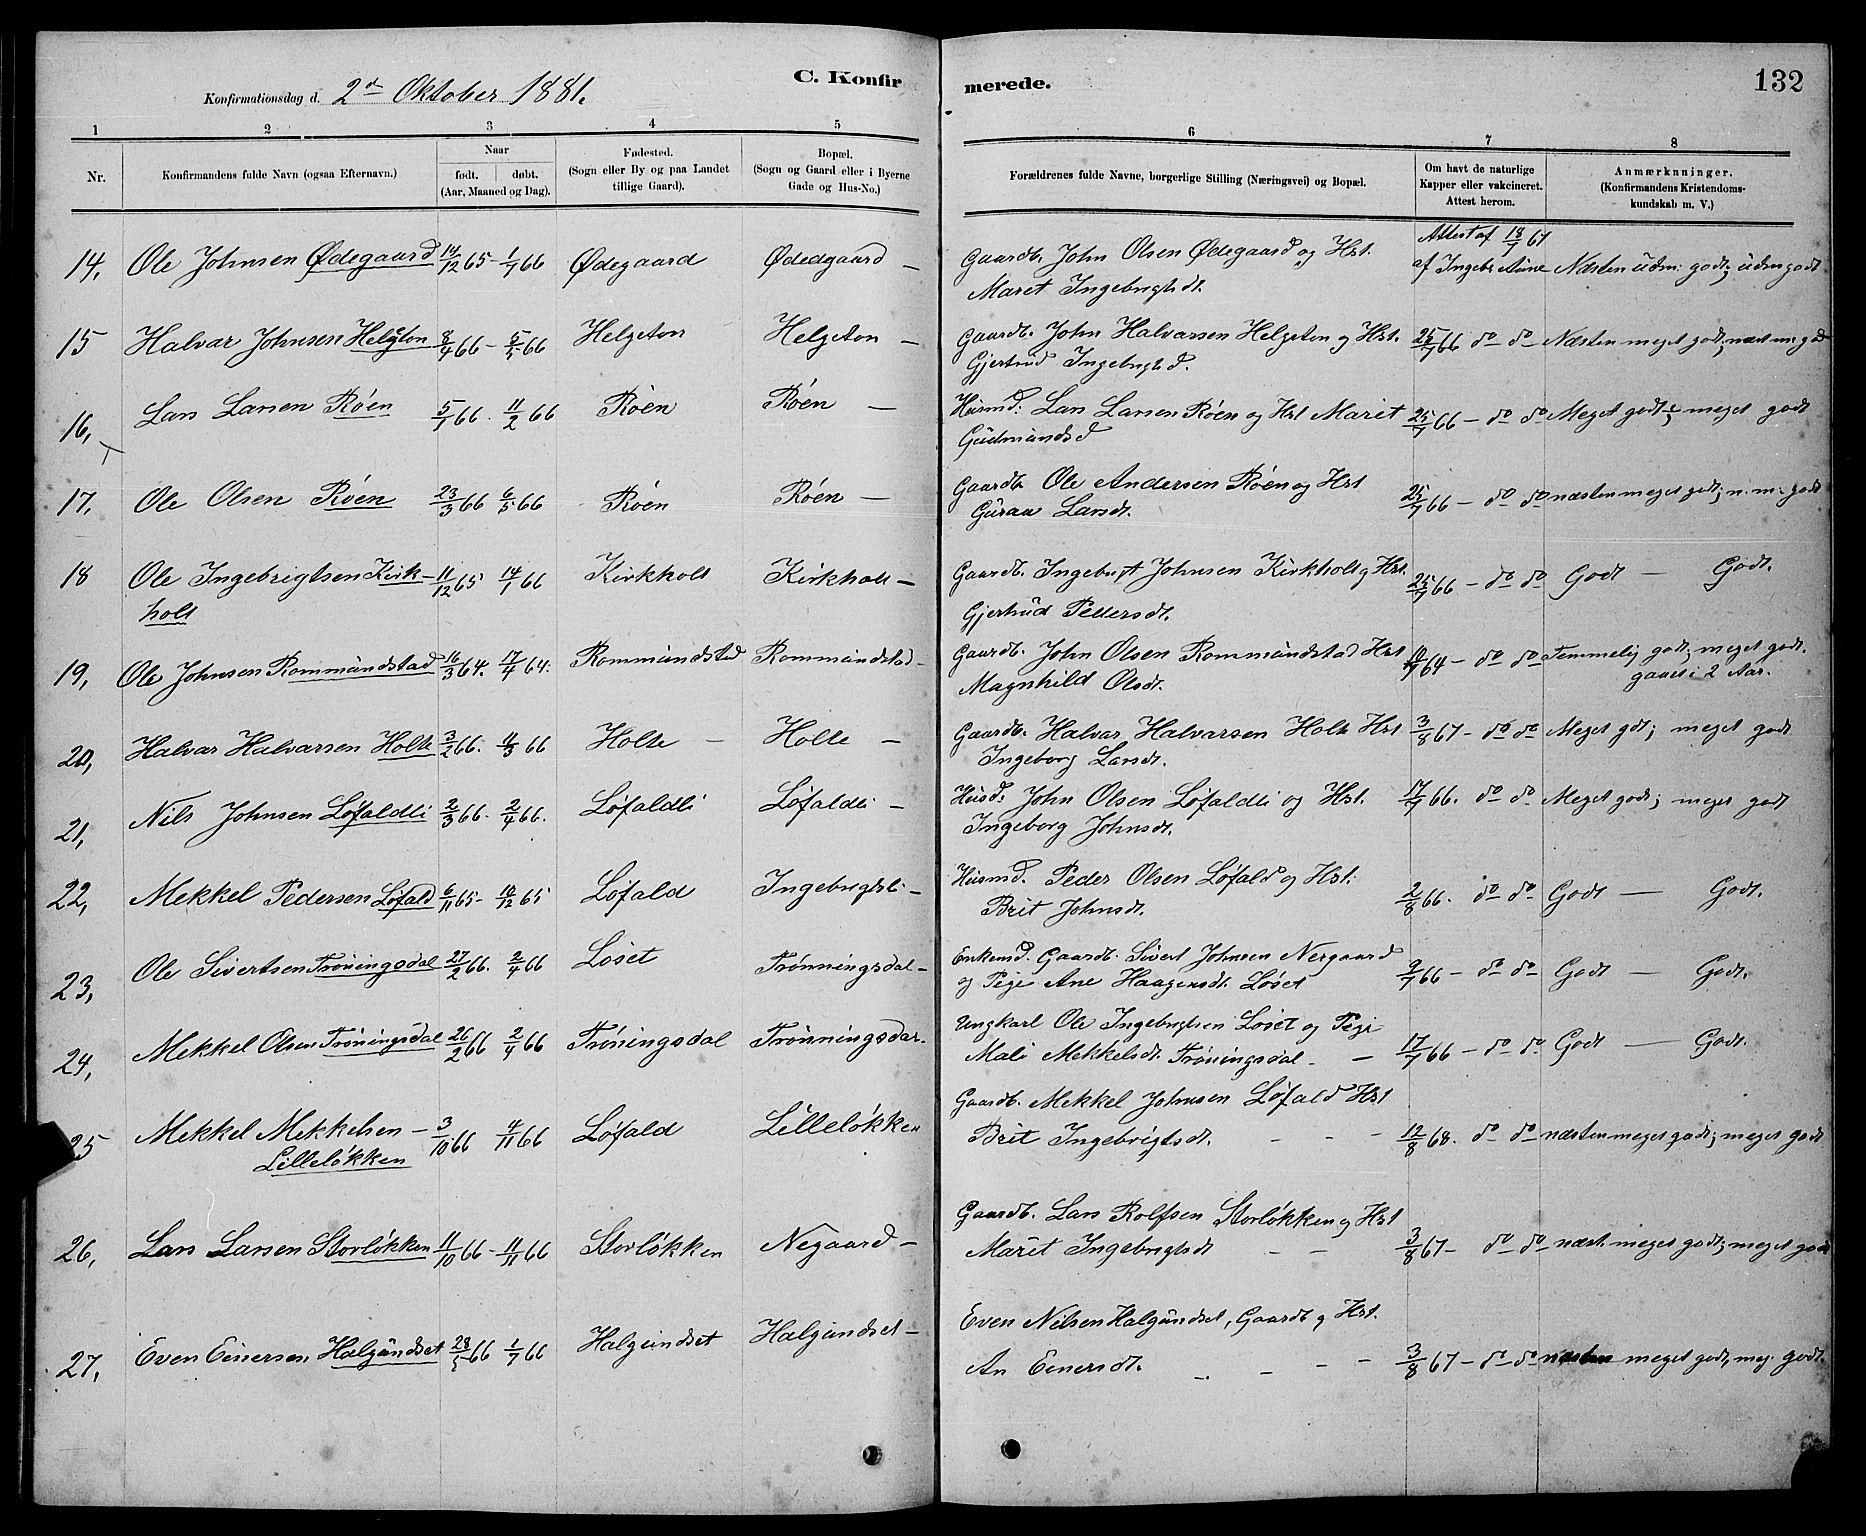 Konfirmationsdag d. 2den Oktober 1881.
C. Konfirmerede.
132
1 2 3 4 5 6 7 8
Nr. Konfirmandens fulde Navn (ogsaa Efternavn.) Naar født. døbt. (Aar, Maaned og Dag). Fødested. (Sogn eller By og paa Landet tillige Gaard). Bopæl. (Sogn og Gaard eller i Byerne Gade og Hus-No.) Forældrenes fulde Navne, borgerlige Stilling (Næringsvei) og Bopæl. Om havt de naturlige Kapper eller vakcineret. Attest herom. Anmærknninger. (Konfirmandens Kristendomskundskab m. V.)
14, Ole Johnsen Ødegaard 14/12 65 - 1/7 66 Ødegaard Ødedgaard - Gaardb. John Olsen Ødegaard og Hst. Attest af 18/7 67
Maret Ingebrigtsdt. af Ingebr Aune Næsten udm: godt; udm godt
15 Halvar Johnsen Helgeton 8/4 66 - 5/5 66 Helgeton Helgeton - Gaardb. John Halvarsen Helgeton og Hst. 25/7 66 do do Næsten meget godt; næst m. god
Gjertrud Ingebrigtsd.
16, Lars Larsen Röen 5/1 66. 11/2 66 Röen Röen - Husmd: Lars Larsen Röen og Hst Maret 25/7 66 - do do Meget godt; meget godt
Gudmundsd
17, Ole Olsen Röen 23/3 66 6/5 66 Röen Röen - Gaardb. Ole Andersen Röen og Hst 25/7 66 - do do næsten meget godt; n. m. godt
Guraa Larsdt.
18 Ole Ingebrigtsen Kirk- 11/12 65 14/1 66 Kirkholt Kirkholt - Gaardb. Ingebrigt Johnsen Kirkholt og Hst. 25/7 66 - do do Godt - Godt.
holt Gjertrud Pedersdt.
19, Ole Johnsen Rommundstad 16/3 64. 17/4 64. Rommundstad Rommundstad - Gaardb. John Olsen Rommundstad Hst 10/7 64 - do do Temmelig godt; meget godt.
Magnhild Olsdt. gaaet i 2 Aar.
20, Halvar Halvarsen Holte 3/2 66. 4/3 66 Holte - Holte - Gaardb. Halvar Halvarsen Holte Hst 3/8 67 - do do Meget gdt; meget godt
Ingeborg Larsdt.
21, Nils Johnsen Löfaldli 2/3 66. 2/4 66. Löfaldli Löfaldli - Husd: John Olsen Löfaldli og Hst. 17/7 66. do do Meget godt; meget godt
Ingeborg Johnsdt.
22, Mekkel Pedersen Löfald 6/11 65 - 10/12 65 Löfald Ingebrigtsli - Husmd. Peder Olsen Löfald og Hst: 2/8 66. do do Godt - Godt.
Brit Johnsdt.
23, Ole Sivertsen Tröningsdal 27/2 66. 2/4 66 Löset Trönningsdal - Enkemd. Gaardb. Sivert Johnsen Nergaard
og Pige Ane Haagensdt. Löset 9/7 66 - do do Godt - Godt.
24, Mekkel Olsen Tröningsdal 26/2 66 2/4 66 Tröningsdal Trönningsdal. Ungkarl Ole Ingebrigtsen Löset og Pige
Mali Mekkelsdt. Tröningsdal - 17/7 66 - do do Godt - Godt.
25 Mekkel Mekkelsen - 3/10 66 4/11 66 Löfald Lilleløkken Gaardb. Mekkel Johnsen Löfald Hst
Lilleløkken Brit Ingebrigtsdt. - - - 12/8 68. do do næsten meget godt; meget godt
26, Lars Larsen Storløkken 11/10 66 - 11/11 66 Storløkken Negaard - Gaardb. Lars Rolfsen Storløkken og Hst
Marit Ingebrigtsdt - - 3/8 67 - do do næst. meget godt; meget godt
27, Even Einersen Halgundset 28/5 66 1/7 66 Halgundset Halgundset - Even Nilsen Halgundset, Gaardb og Hst.
An Einersdt. - - - - 3/8 67 - do do næsten meget godt, meg. godt.